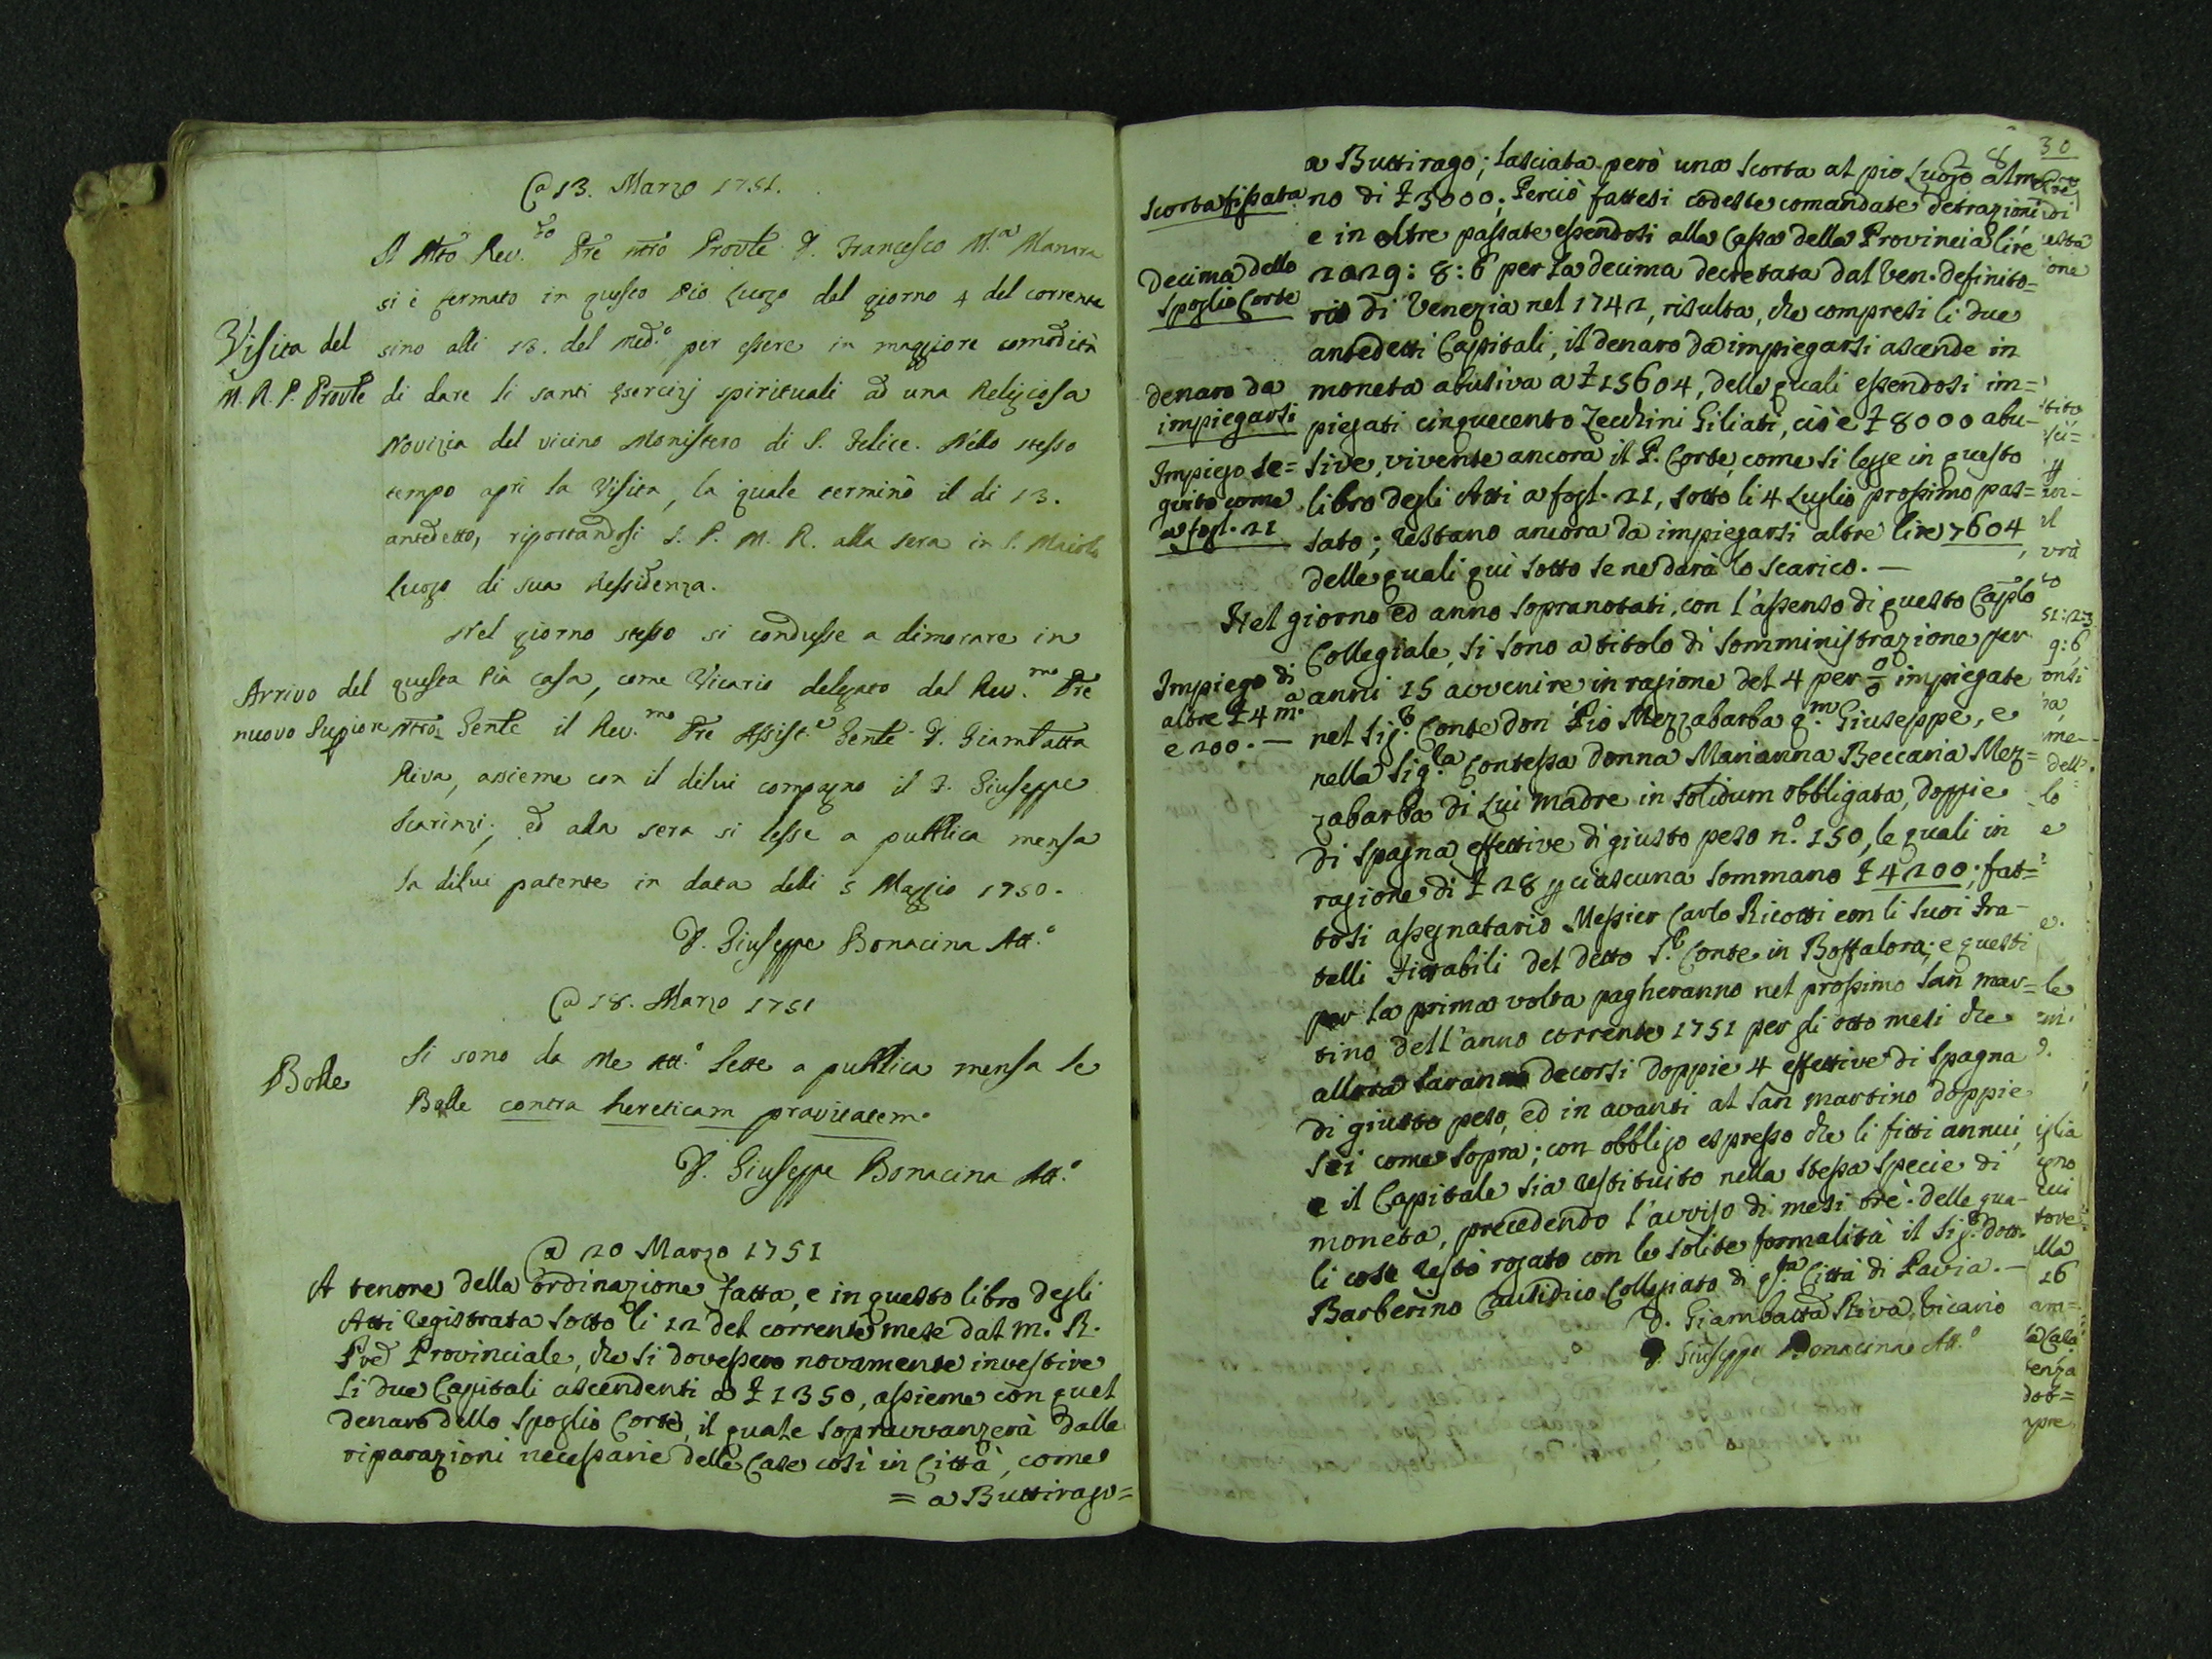 @ 13. Marzo 1751.
Il Mto Rev.do Pre nro Provle D. Francesco M.a Manara
si è fermato in questo Pio Luogo dal giorno 4 del corrente
Visita del
M. R. P. Provle
sino alli 13. del med.o per essere in maggiore comodità
di dare li santi Esercizj spirituali ad una Religiosa
Novizia del vicino Monistero di S. Felice. Nello stesso
tempo aprì la Visita, la quale terminò il di 13.
antedetto, riportandosi S. P. M. R. alla sera in S. Maiolo
luogo di sua Ressidenza.
Nel giorno stesso si condusse a dimorare in
Arrivo del
nuovo Supiore
questa Pia Casa, come Vicario delegato dal Rev.mo Pre
nro Genle il Rev.mo Pre Assist.e Genle D. Giambatta
Riva, assieme con il dilui compagno il F. Giuseppe
Scarinzi; ed alla sera si lesse a pubblica mensa
la dilui patente in data delli 5 Maggio 1750.
D. Giuseppe Bonacina Att.o
@ 18. Marzo 1751
Bolle
Si sono da Me Att.o lette a pubblica mensa le
Bolle contra hereticam pravitatem.
D. Giuseppe Bonacina Att.o
@ 20 Marzo 1751
A tenore della ordinazione fatta, e in questo libro degli
Atti registrata sotto li 12 del corrente mese dal M. R.
Pre Provinciale, che si dovessero novamente investire
li due Capitali ascendenti a £ 1350, assieme con quel
denaro dello Spoglio Corte, il quale sopravvanzerà dalle
riparazioni necessarie delle Case così in Città, come
= a Buttirago =
30
a Buttirago; lasciata però una scorta al pio Luogo alme
scorta fissata
no di £ 3000; Perciò fattesi codeste comandate detrazioni
e in oltre passate essendosi alla Cassa della Provincia lire
Decima dello
Spoglio Corte
2029: 8: 6 per la decima decretata dal Ven. definito=
rio di Venezia nel 1742, risulta, che compresi li due
antedetti Capitali, il denaro da impiegarsi ascende in
denaro da
impiegarsi
moneta abusiva a £ 15604, delle quali essendosi im=
piegati cinquecento Zecchini Giliati, cioè £ 8000 abu-
Impiego se=
guito come
a fogl. 21
sive, vivente ancora il P. Corte, come si legge in questo
libro degli Atti a fogl. 21, sotto li 4 Luglio prossimo pas=
sato; restano ancora da impiegarsi altre lire 7604,
delle quali quì sotto se ne darà lo scarico. —
Nel giorno ed anno sopranotati, con l'assenso di questo Caplo
Collegiale, si sono a titolo di somministrazione per
Impiego di
altre £ 4 m.a
e 200. —
anni 15 avvenire in ragione del 4 per 0/0 impiegate
nel Sig.r Conte don Pio Mezzabarba q.m Giuseppe, e
nella Sig.la Contessa donna Marianna Beccaria Mez=
zabarba di Lui madre in solidum obbligata, doppie
di Spagna effettive di giusto peso n.o 150, le quali in
ragione di £ 28 p ciascuna sommano £ 4200; fat=
tosi assegnatario Messier Carlo Ricotti con li suoi Fra-
telli Fittabili del detto S.r Conte in Boffalora; e questi
per la prima volta pagheranno nel prossimo San mar=
tino dell'anno corrente 1751 per gli otto mesi che
allora saranno decorsi doppie 4 effettive di Spagna
di giusto peso, ed in avanti al San martino doppie
sei come sopra; con obbligo espresso che li fitti annui,
e il Capitale sia restituito nella stessa specie di
moneta, precedendo l'avviso di mesi trè. delle qua-
li cose restò rogato con le solite formalità il Sig.r Dott.
Barberino Causidico Collegiato di q.sta Città di Pavia. —
D. Giambatta Riva Vicario
D. Giuseppe Bonacina Att.o